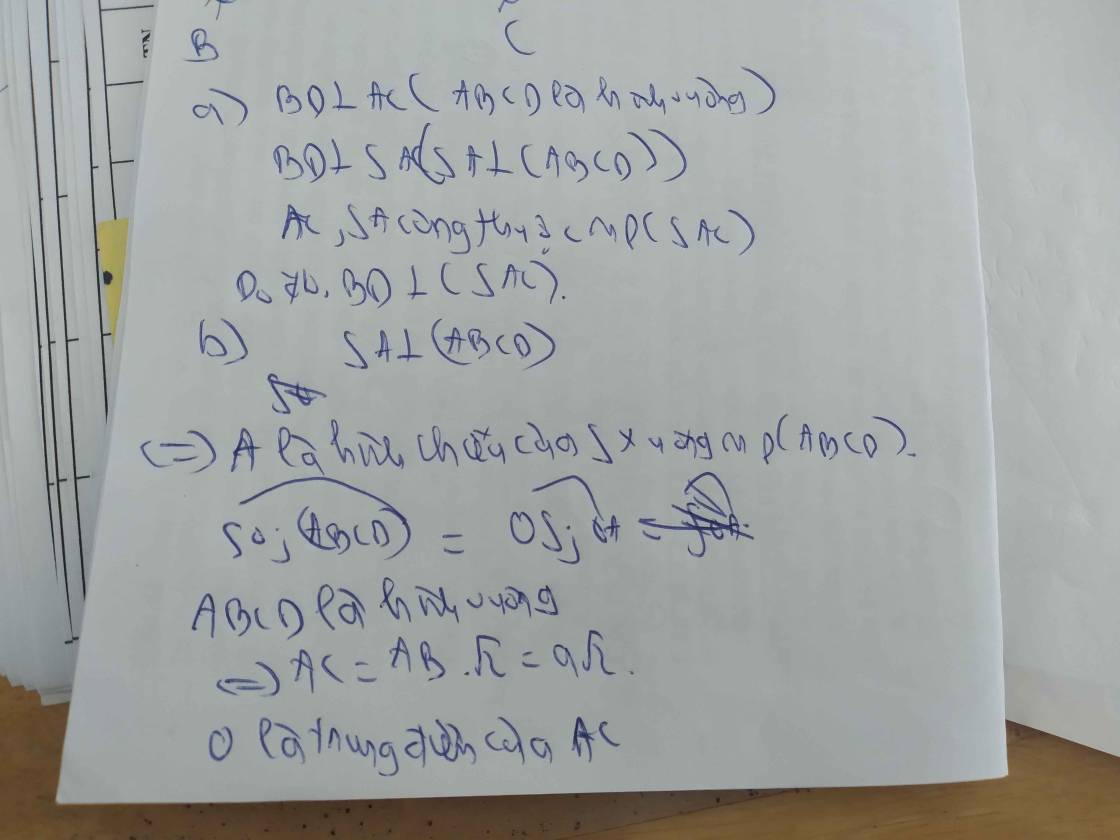 B C
TN
a) BD⊥AC (ABCD là hình vuông)
BD⊥SA (SA⊥(ABCD))
AC, SA cùng thuộc mp(SAC)
Do đó, BD⊥(SAC).
b) SA⊥(ABCD)
<=> A là hình chiếu của S xuống mp(ABCD).
SO; (ABCD) = OS; OA =
ABCD là hình vuông
<=> AC = AB.√2 = a√2.
O là trung điểm của AC